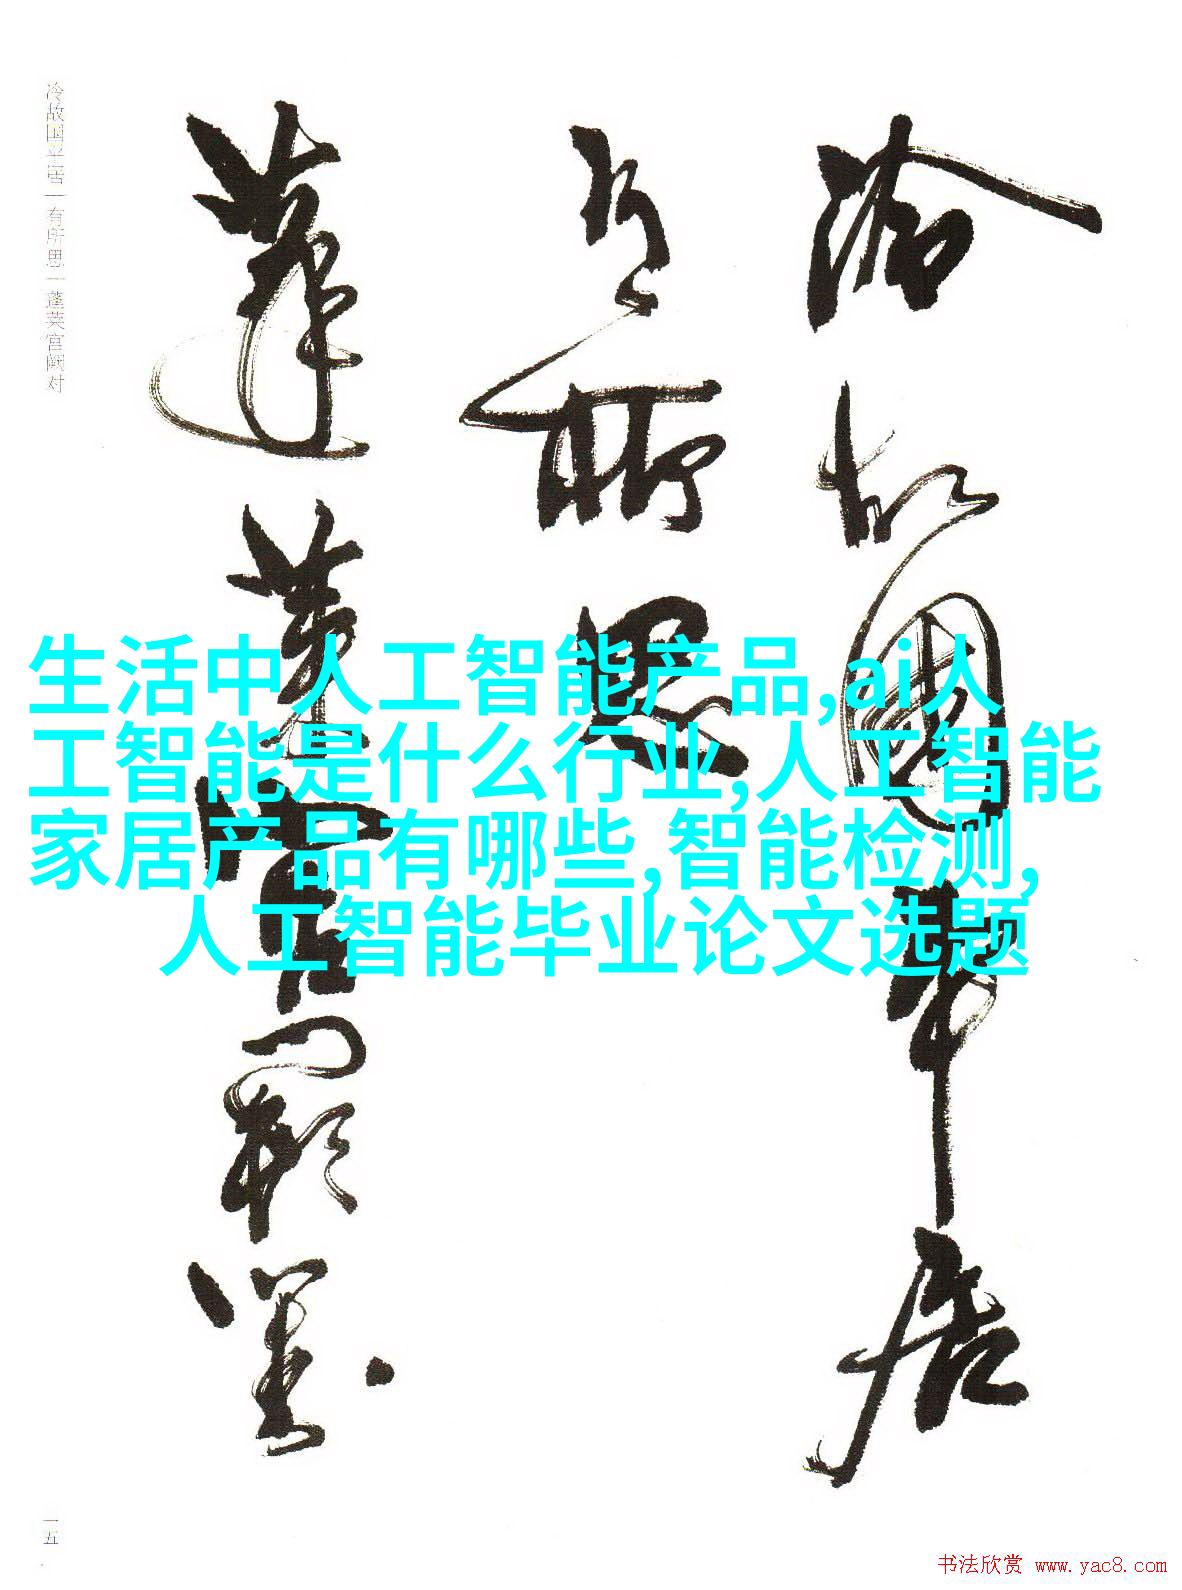 冷故国平居
有所思
蓬莱宫阙对
冷故国平居｜有所思｜蓬莱宫阙对
生活中人工智能产品,ai人
工智能是什么行业,人工智能
家居产品有哪些,智能检测,
人工智能毕业论文选题
一五
书法欣赏 www.yac8.com